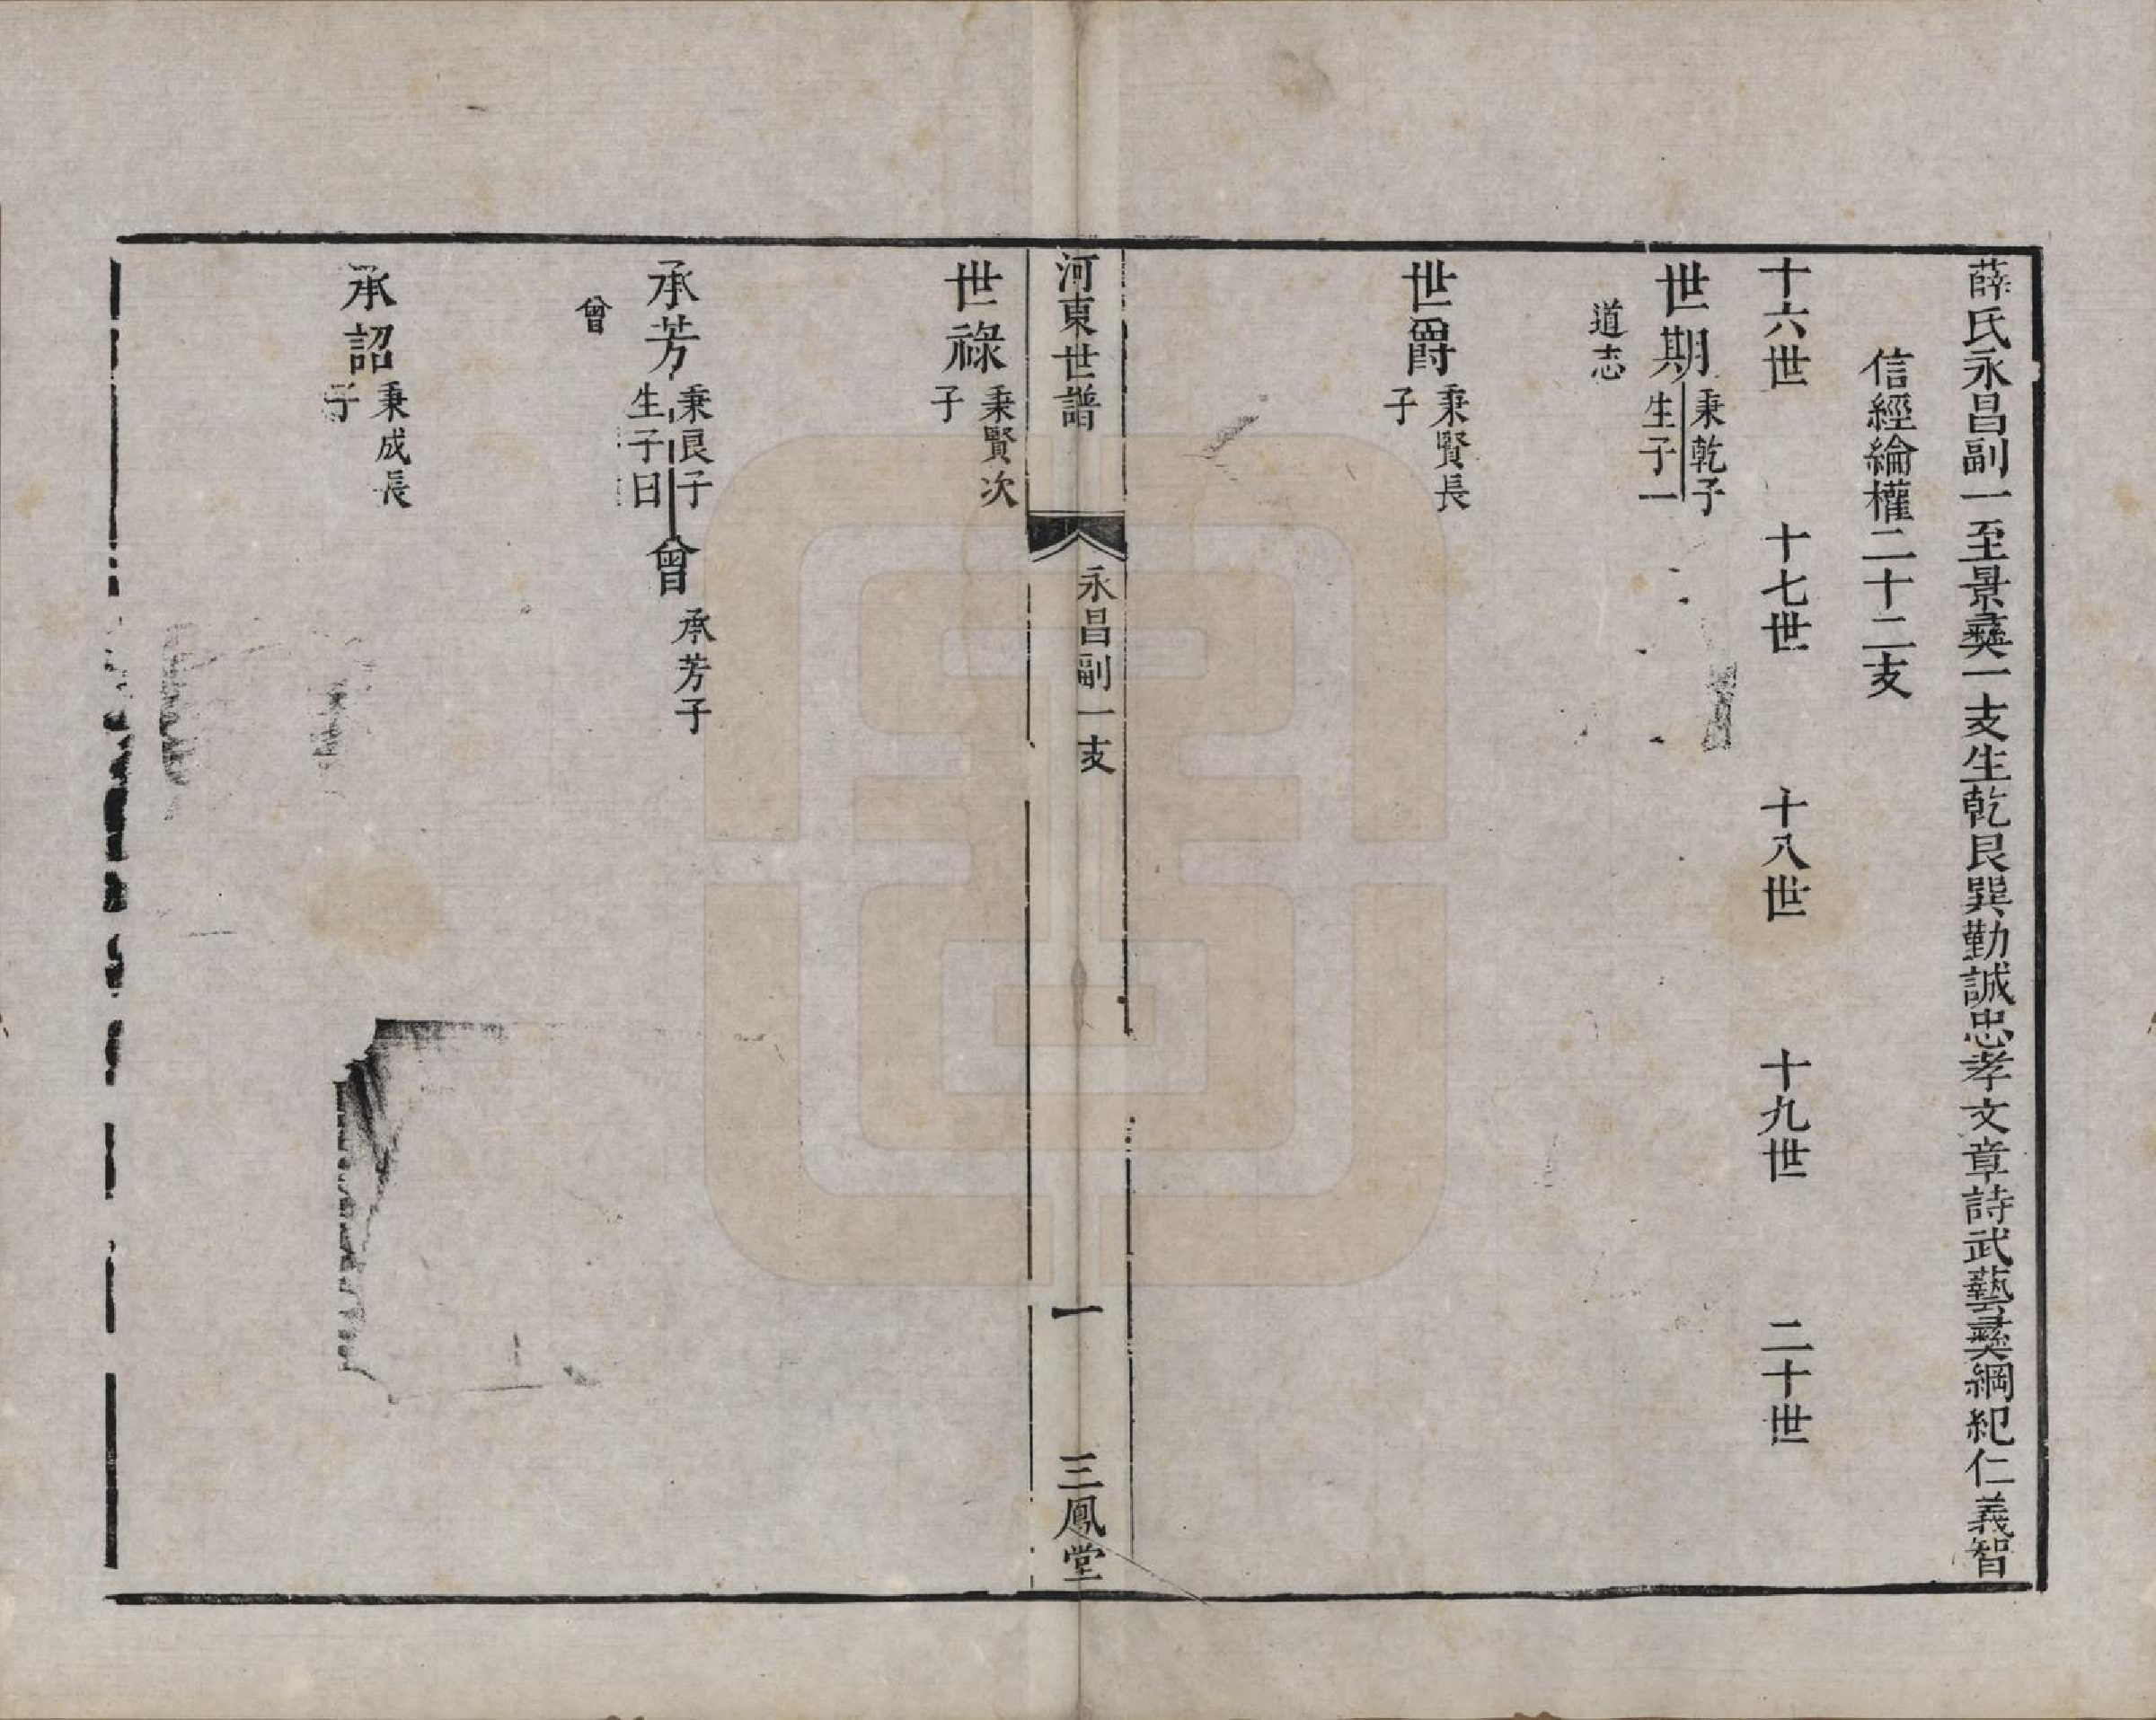 薛氏永昌副一至景彝一支生乾艮巽勤誠忠孝文章詩武藝彝綱紀仁義智
信經綸權二十二支
十六世　十七世　十八世　十九世　二十世
世期
秉乾子
生子一
道志
世爵
秉賢長
子
河東世譜　永昌副一支　一　三鳳堂
世祿
秉賢次
子
承芳
秉良子
生子曰
曾
曾
承芳子
承詔
秉成長
子